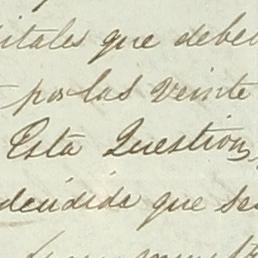 itales que debe
por las veinte
Esta Question,
decidida que se